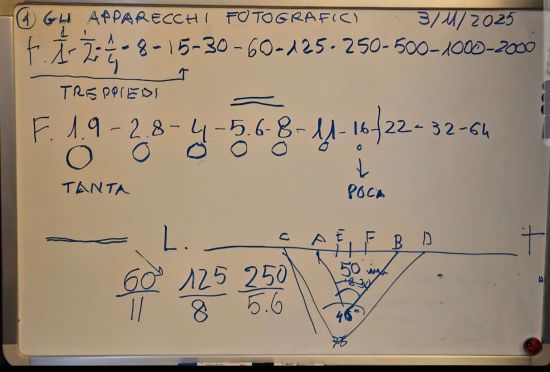 ① GLI APPARECCHI FOTOGRAFICI 3/11/2025
t. 1/1 - 1/2 - 1/4 - 8 - 15 - 30 - 60 - 125 - 250 - 500 - 1000 - 2000
TREPPIEDI
F. 1.9 - 2.8 - 4 - 5.6 - 8 - 11 - 16 - 22 - 32 - 64
TANTA POCA
L. C A E F B D
60/11 125/8 250/5.6
50 mm
46°